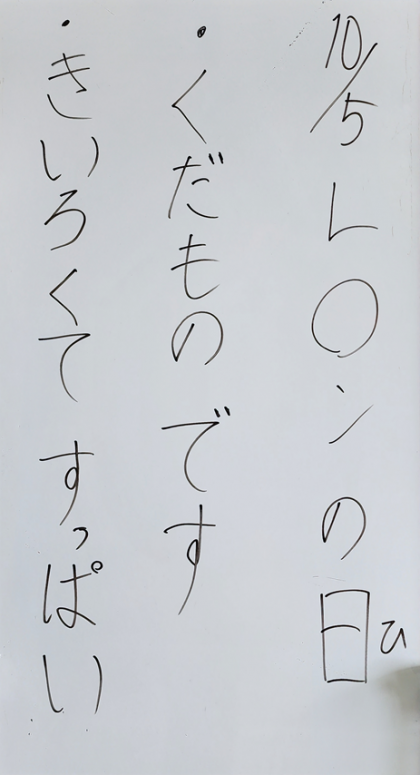 10/5 レ〇ンの日
ひ
・くだものです
・きいろくて すっぱい